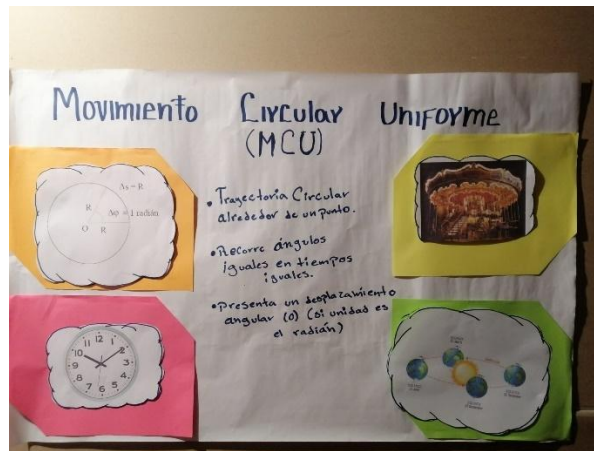 Movimiento Circular Uniforme
(MCU)
Δs = R
R
Δφ = 1 radián
O R
• Trayectoria Circular
alrededor de un punto.
• Recorre ángulos
iguales en tiempos
iguales.
• Presenta un desplazamiento
angular (O) (si unidad es
el radián)
12
1
2
3
4
5
6
7
8
9
10
11